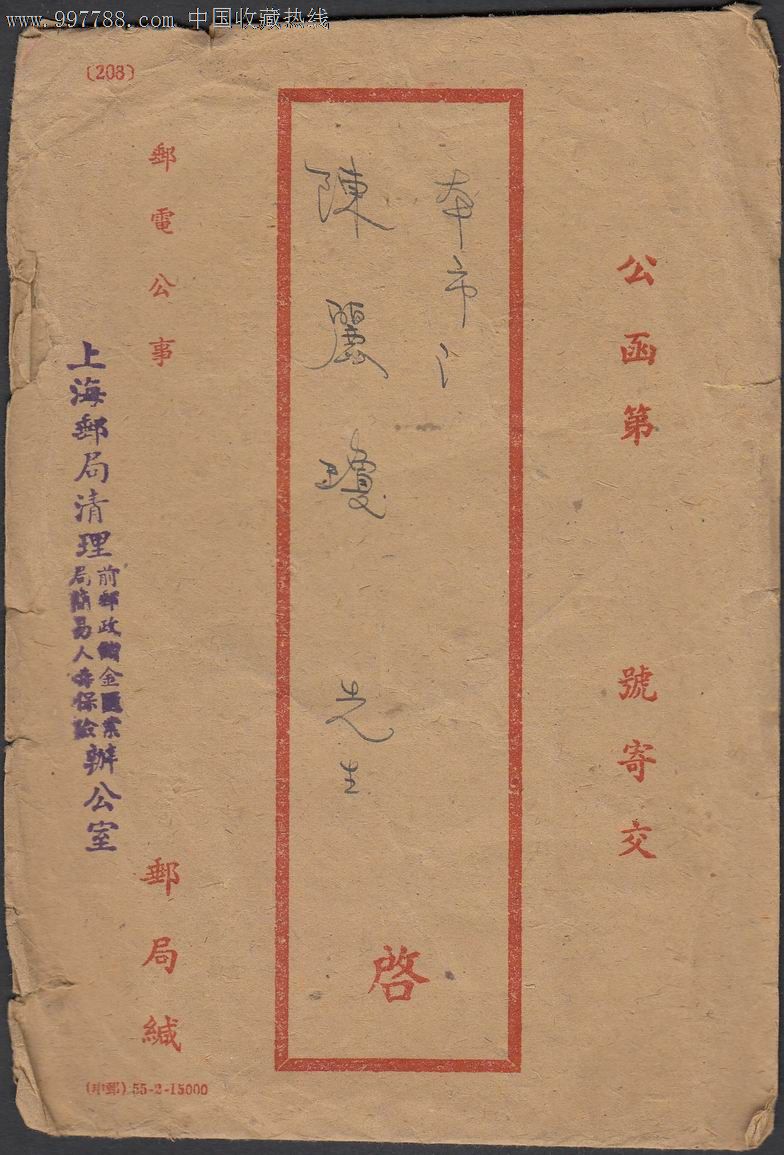 www.997788.com 中国收藏热线
(208)
公函第 號寄交
本市
陳麗瓊 先生
啓
郵電公事
上海郵局清理前郵政儲金匯業局簡易人壽保險辦公室
郵局緘
(申郵) 55-2-15000